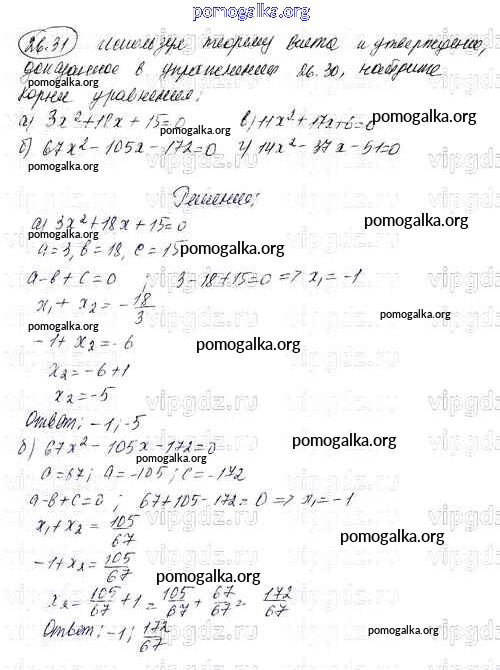 pomogalka.org
26.31 Используя теорему Виета и утверждение,
доказанное в упражнении 26.30, найдите
pomogalka.org
корни уравнения:
а) 3x² + 18x + 15 = 0 в) 11x² + 17x + 6 = 0
pomogalka.org pomogalka.org
б) 67x² - 105x - 172 = 0 г) 14x² - 37x - 51 = 0
pomogalka.org
Решение:
а) 3x² + 18x + 15 = 0 pomogalka.org
pomogalka.org
a = 3, b = 18, c = 15 pomogalka.org
a - b + c = 0 ; 3 - 18 + 15 = 0 => x₁ = -1
x₁ + x₂ = -18/3
pomogalka.org pomogalka.org
-1 + x₂ = -6 pomogalka.org
x₂ = -6 + 1
x₂ = -5
vipgdz.ru vipgdz.ru
Ответ: -1; -5
б) 67x² - 105x - 172 = 0 pomogalka.org
pomogalka.org
a = 67; a = -105; c = -172
a - b + c = 0 ; 67 + 105 - 172 = 0 => x₁ = -1
x₁ + x₂ = 105/67
pomogalka.org
-1 + x₂ = 105/67
pomogalka.org
x₂ = 105/67 + 1 = 105/67 + 67/67 = 172/67
Ответ: -1; 172/67
pomogalka.org pomogalka.org